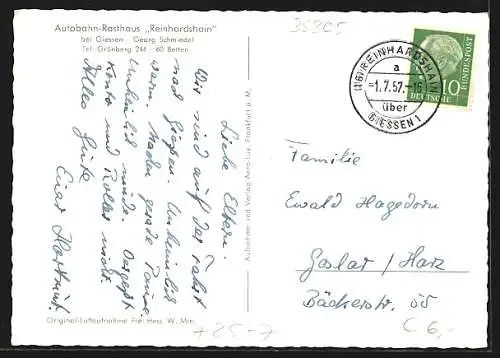 Autobahn-Rasthaus „Reinhardshain"
bei Giessen · Georg Schmiedel
Tel. Grünberg 244 · 60 Betten
Liebe Eltern.
Wir sind auf der Fahrt
nach Giessen. Unheimlich
warm. Machen gerade Pause.
Unheimlich müde. Vergesst
Konto und Roller nicht.
Alles Gute
Euer Hartmut.
Original-Luftaufnahme Frei Hess. W. Min.
Aufnahme und Verlag Frankfurt a. M.
(16) REINHARDSHAIN
a
-1.7.57.-16
über
GIESSEN 1
DEUTSCHE BUNDESPOST
10
Familie
Ewald Hagedorn
Goslar / Harz
Bäckerstr.
35305
+25-7
C 6,-